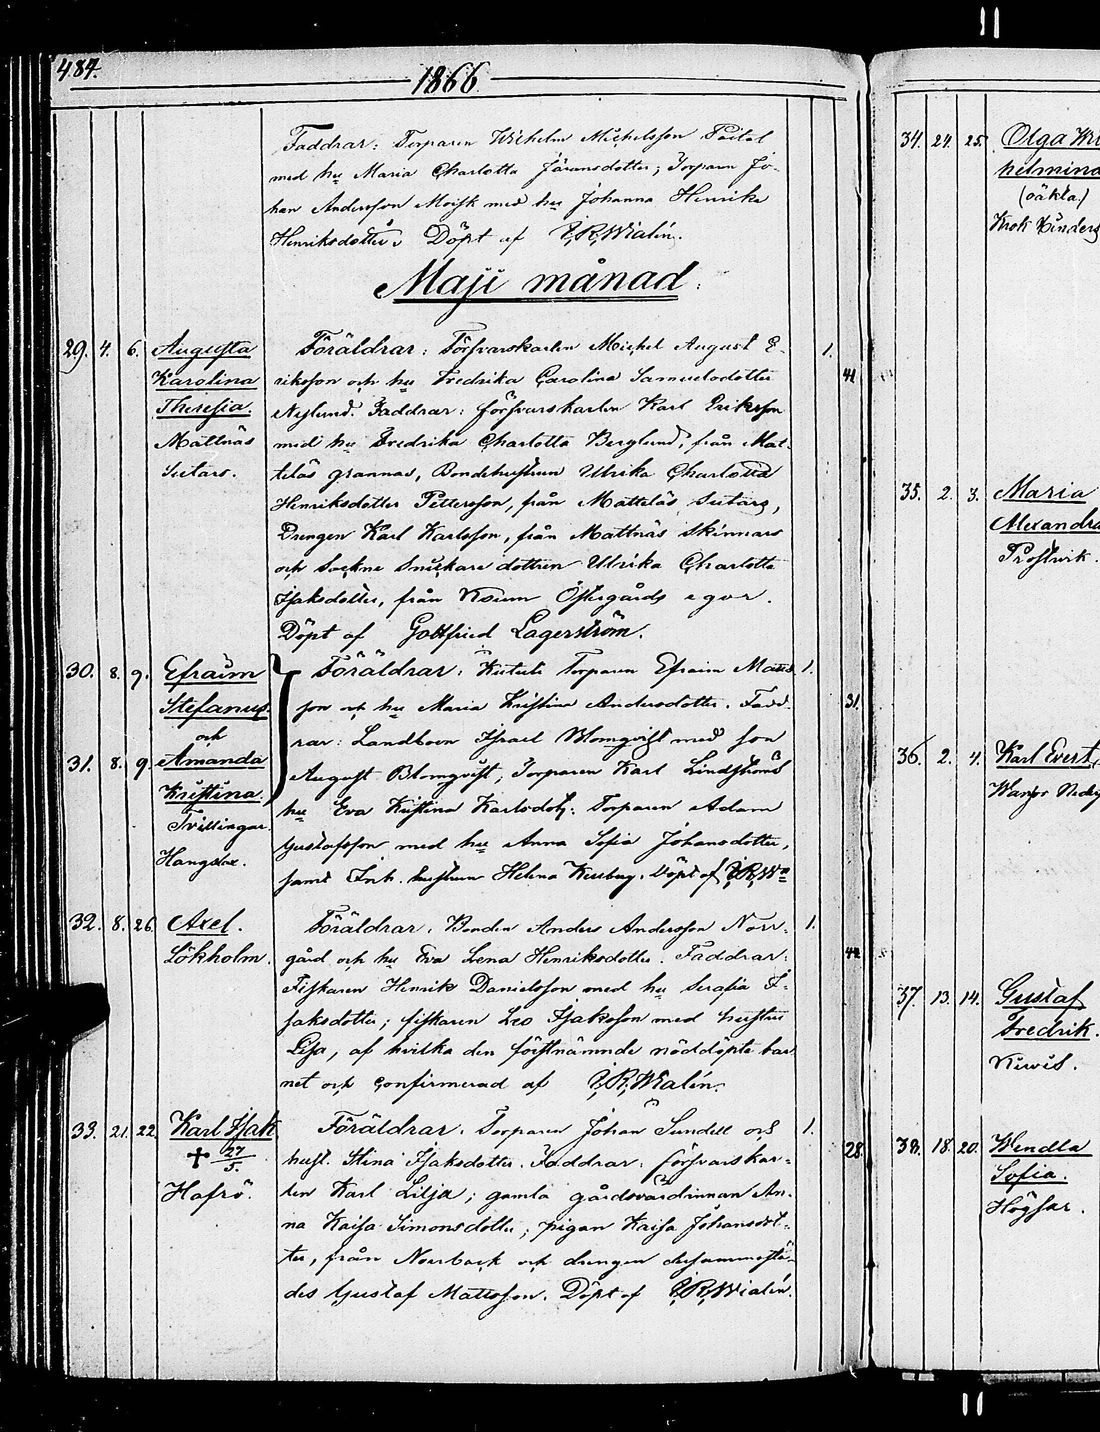 484.
1866
Faddrar: Torparen Wilhelm Michelsson
med hu Maria Charlotta Göransdotter; Torparen Jo-
han Andersson Moisk med hu Johanna Henrika
Henriksdotter. Döpt af F.R.Wialén.
Maji månad.
29. 4. 6. Augusta Föräldrar: Försvarskarlen Michel August E- 1.
Karolina riksson och hu Fredrika Carolina Samuelsdotter 41
Theresia. Nylund. Faddrar: försvarskarlen Karl Eriksson
Mattnäs med hu Fredrika Charlotta Berglund, från Mat-
Sutars. teläs grannas, Bondehustrun Ulrika Charlotta
Henriksdotter Pettersson, från Matteläs Sutars,
Drengen Karl Karlsson, från Mattnäs Skinnars
och Sockne Snickare dottren Ulrika Charlotta
Isaksdotter, från Östergårds egor.
Döpt af Gottfried Lagerström.
30. 8. 9. Efraim Föräldrar: Torparen Efraim Matts- 1.
Stefanus son och hu Maria Kristina Andersdotter. Fadd- 31.
och rar: Landboen Israel Blomqvist med son
31. 8. 9. Amanda August Blomqvist; Torparen Karl Lindströms
Kristina. hu Eva Kristina Karlsdotr; Torparen Adam
Tvillingar. Gustafsson med hu Anna Sofia Johansdotter,
Hangslax. samt Enk. hustrun Helena Döpt af F.R.Wn
32. 8. 26. Axel. Föräldrar. Bonden Anders Andersson Norr- 1.
Lökholm. gård och hu Eva Lena Henriksdotter. Faddrar: 44
Fiskaren Henrik Danielsson med hu Serafia I-
saksdotter; fiskaren Leo Isaksson med hustru
Lisa, af hvilka den förstnämnde nöddöpte bar-
net och confirmerad af F.R.Wialén.
33. 21. 22. Karl Isak Föräldrar. Torparen Johan Sundell och 1.
✝ 27/5. hust. Stina Isaksdotter. Faddrar: försvarskar- 28.
Hafrö. len Karl Lilja; gamla gårdsvärdinnan An-
na Kaisa Simonsdotter; pigan Kaisa Johansdot-
ter, från Norrback och drengen dersammastä-
des Gustaf Mattsson. Döpt af F.R.Wialén.
34. 24. 25. Olga Wil
helmina
(oäkta.)
Krok
35. 2. 3. Maria
Alexandra
Prostvik.
36. 2. 4. Karl Evert
37. 13. 14. Gustaf
Fredrik.
Kiwis.
38. 18. 20. Wendla
Sofia.
Högsar.